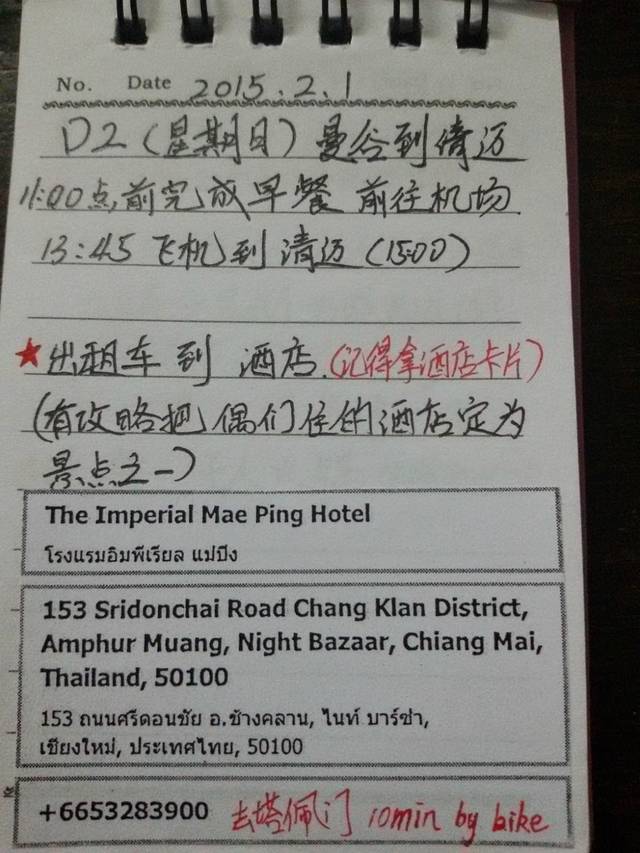 No. Date 2015.2.1
D2(星期日)曼谷到清迈
11:00点前完成早餐 前往机场
13:45 飞机到清迈(15:00)
★出租车到 酒店.(记得拿酒店卡片)
(有攻略把偶们住的酒店定为
景点之一)
The Imperial Mae Ping Hotel
โรงแรมอิมพีเรียล แม่ปิง
153 Sridonchai Road Chang Klan District,
Amphur Muang, Night Bazaar, Chiang Mai,
Thailand, 50100
153 ถนนศรีดอนชัย อ.ช้างคลาน, ไนท์ บาร์ซ่า,
เชียงใหม่, ประเทศไทย, 50100
+6653283900 去塔佩门 10min by bike